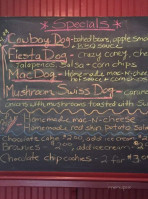 * Specials *
Cowboy Dog - baked beans, apple smoked
BBQ sauce
Fiesta Dog - crazy corey, che
Jalapenos, Salsa + corn chips
Mac Dog - Homemade mac-n-cheese
hot sauce + corn
Mushroom Swiss Dog - carame
onions with mushrooms toasted with Sw
Homemade mac-n-cheese
Homemade red skin potato sala
Chocolate cake - add icecream
Brownies - add icecream
Chocolate chip cookies - 2 for $3